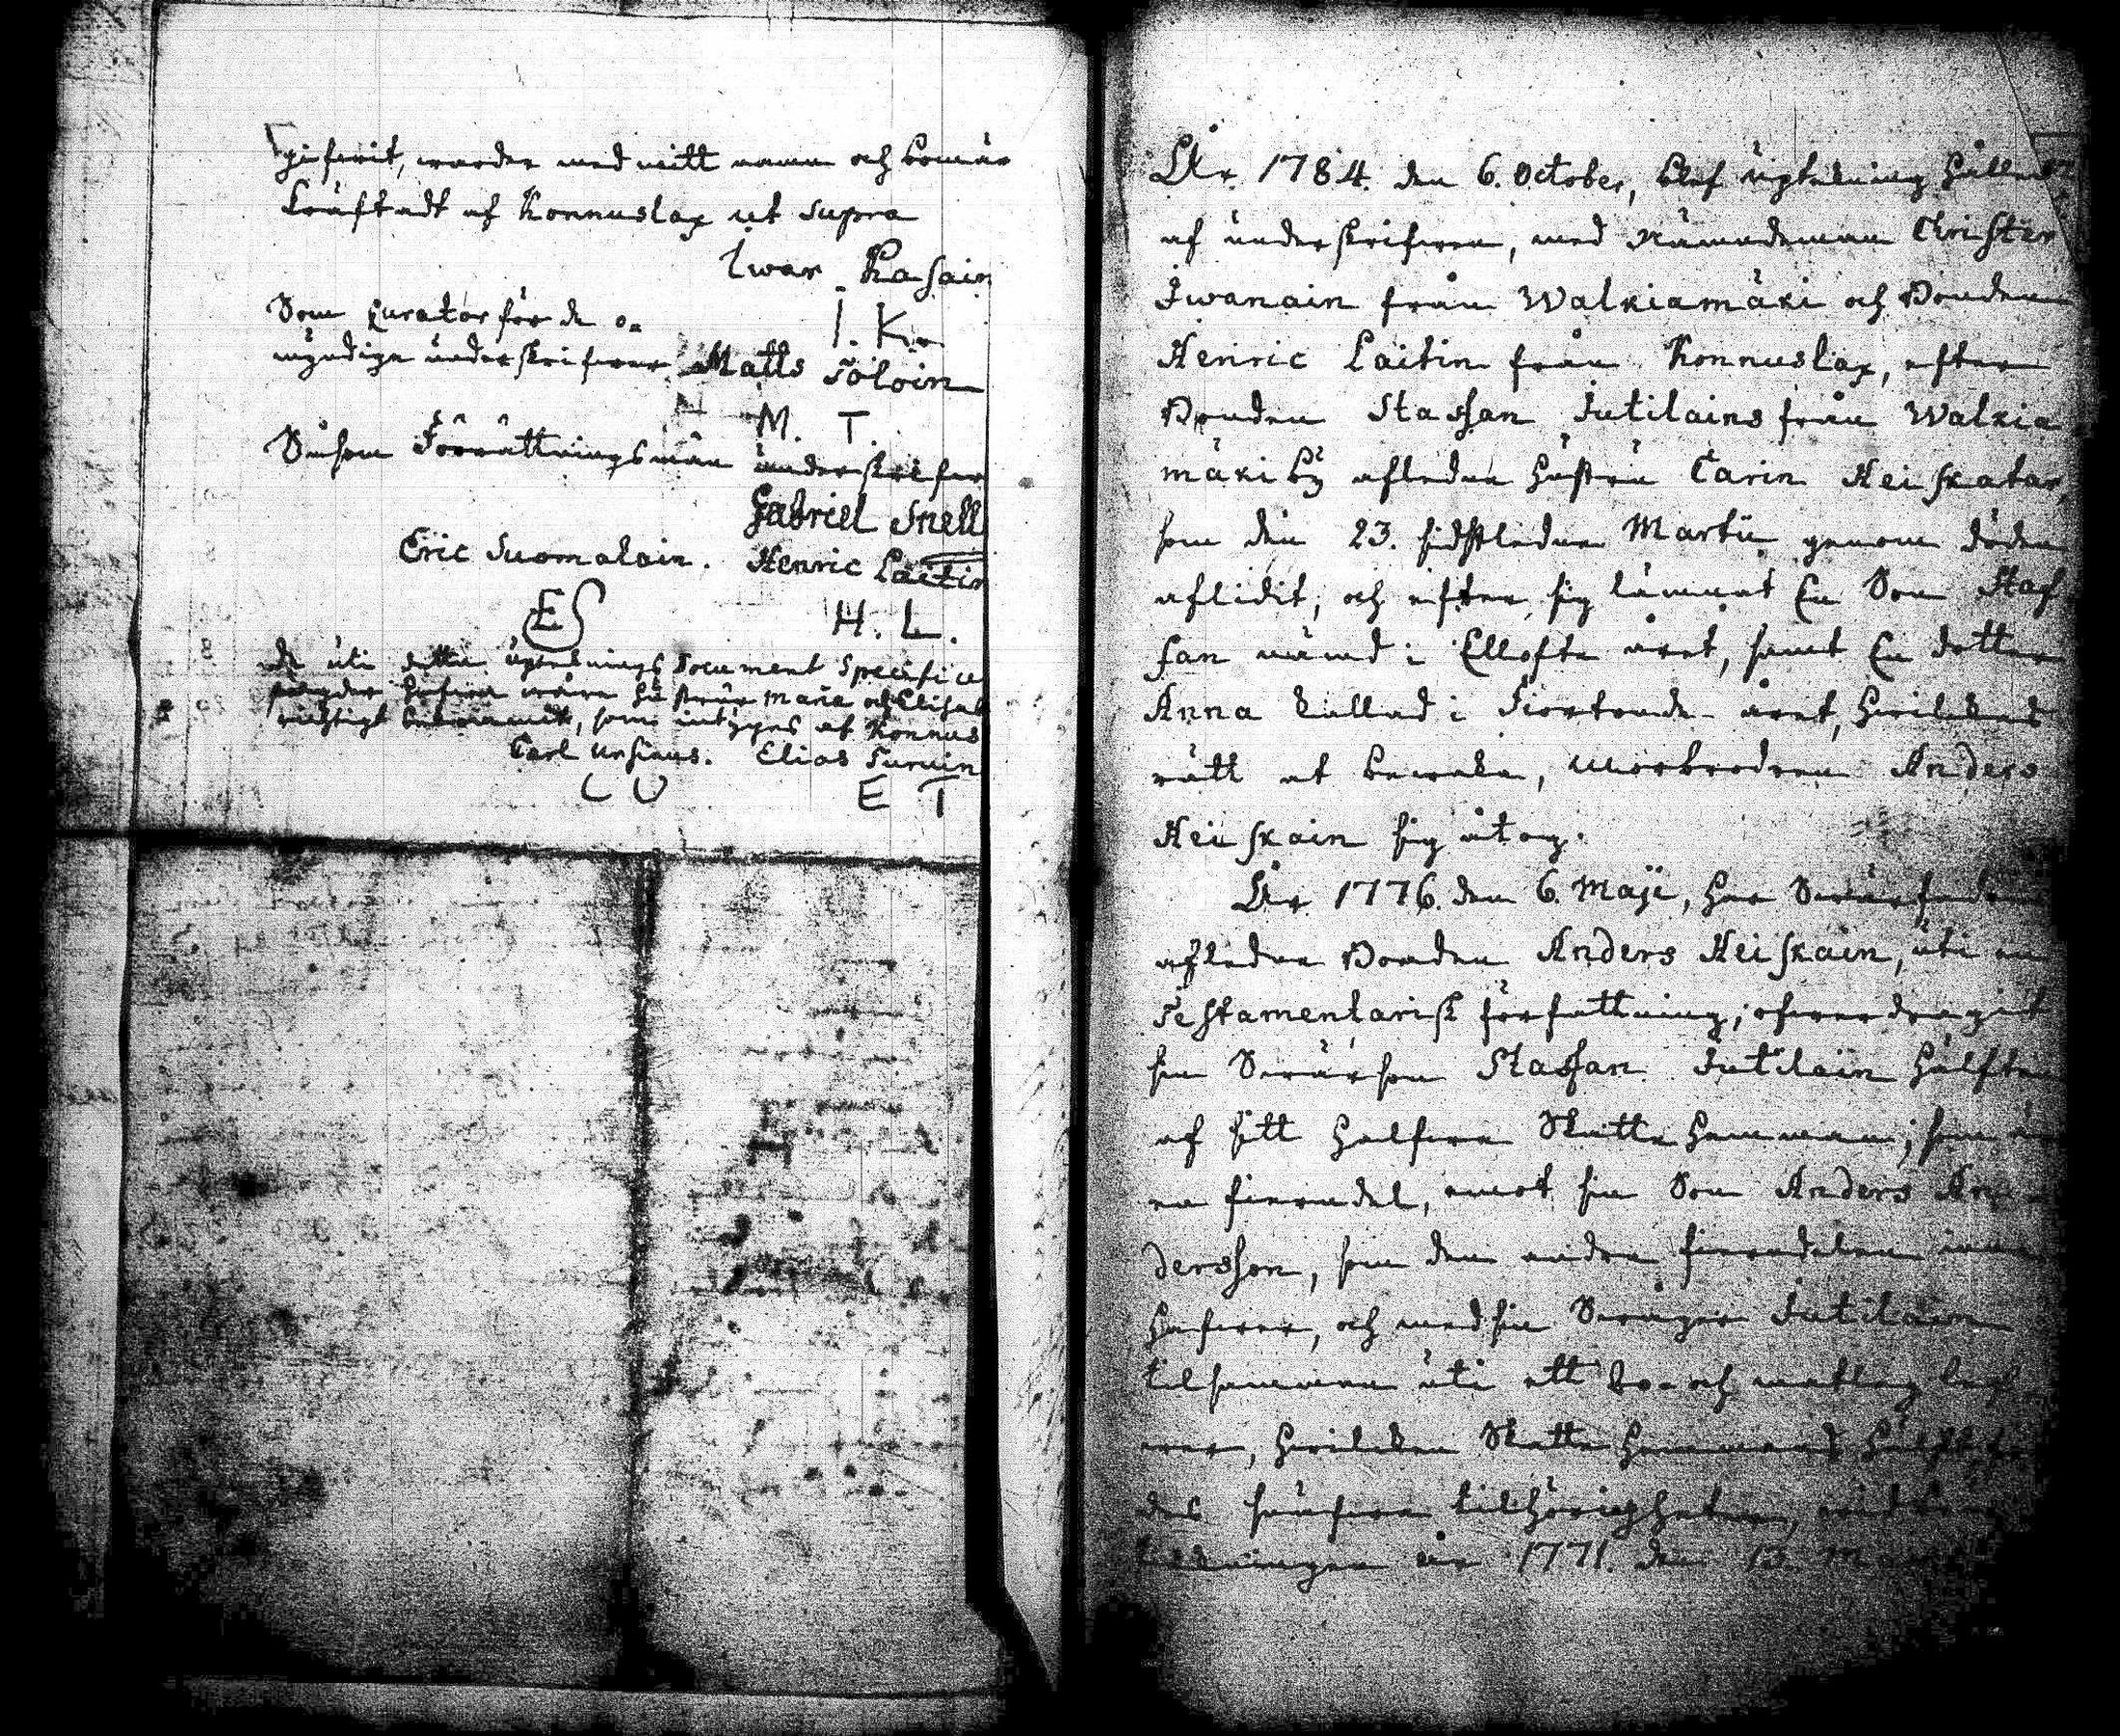 gifwit, warder med mitt namn och bomär
kräftadt af Konnuslax ut supra
Iwar Kasain
Som Curator för de o-
I. K.
myndige underskrifwer Matts Tölöin
M. T.
Såsom Förrättningsmän underskrifwa
Gabriel Snell
Eric Suomalain. Henric Laitin
ES H. L.
De uti detta uptecknings Document Specifice
hafwa wåra hustrur Maria och Elisab
richtigt bekommit, som intygas af Konnus
Carl Ursinus. Elias Turuin
C U E T
År 1784. den 6. October, blef upteckning hållen
af underskrifwen, med Nämndeman Christer
Iwanain från Walkiamäki och Bonden
Henric Laitin från Konnuslax, efter
Bonden Staffan Jutilains från Walkia
mäki by afledna hustru Carin Heiskatar,
som den 23. sidstledne Martii genom döden
aflidit, och efter sig lämnat En Son Staf
fan nämd i Ellofte året, samt En dotter
Anna kallad i Fiortonde året, hwilkas
rätt at bewaka, Morbrodren Anders
Heiskain sig åtog.
År 1776. den 6. Maji, har Swärfadren
afledne Bonden Anders Heiskain, uti en
Testamentarisk författning, öfwerdragit
sin Swärson Staffan Jutilain hälften
af sitt halfwa Skatte Hemman, som är
en fierndel, emot sin Son Anders An
dersson, som den andra fierndelen inne
hafwer, och med sin Swåger Jutilain
tilsamman uti ett bo- och matlag lef
wer, hwilken Skatte Hemmans hälft
des hänförn tilhörigheter,
år 1771. den 13.